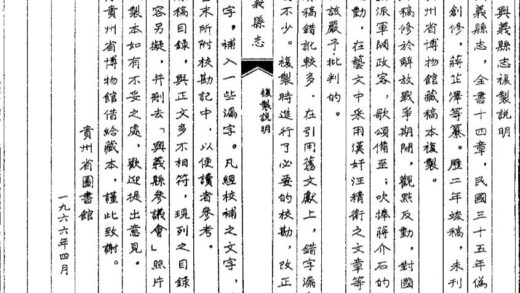 興義縣志複製說明
義縣志，全書十四章，民國三十五年偽
創修，蔣芷澤等纂。歷二年竣稿，未刊
州省博物館藏稿本複製。
稿修於解放戰爭期間，觀點反動，對國
派軍閥政客，歌頌備至；吹捧蔣介石的
動，在藝文中采用漢奸汪精衛之文章等
該嚴予批判的。
稿錯訛較多，在引用舊文獻上，錯字漏
不少。複製時進行了必要的校勘，改正
義縣志
複製說明
字，補入一些漏字。凡經校補之文字，
末所附校勘記中，以便讀者參考。
稿目錄，與正文多不相符，現列之目錄
容另擬，并刪去「興義縣參議會」照片
製本如有不妥之處，歡迎提出意見。
貴州省博物館借給藏本，謹此致謝。
貴州省圖書館
一九六六年四月